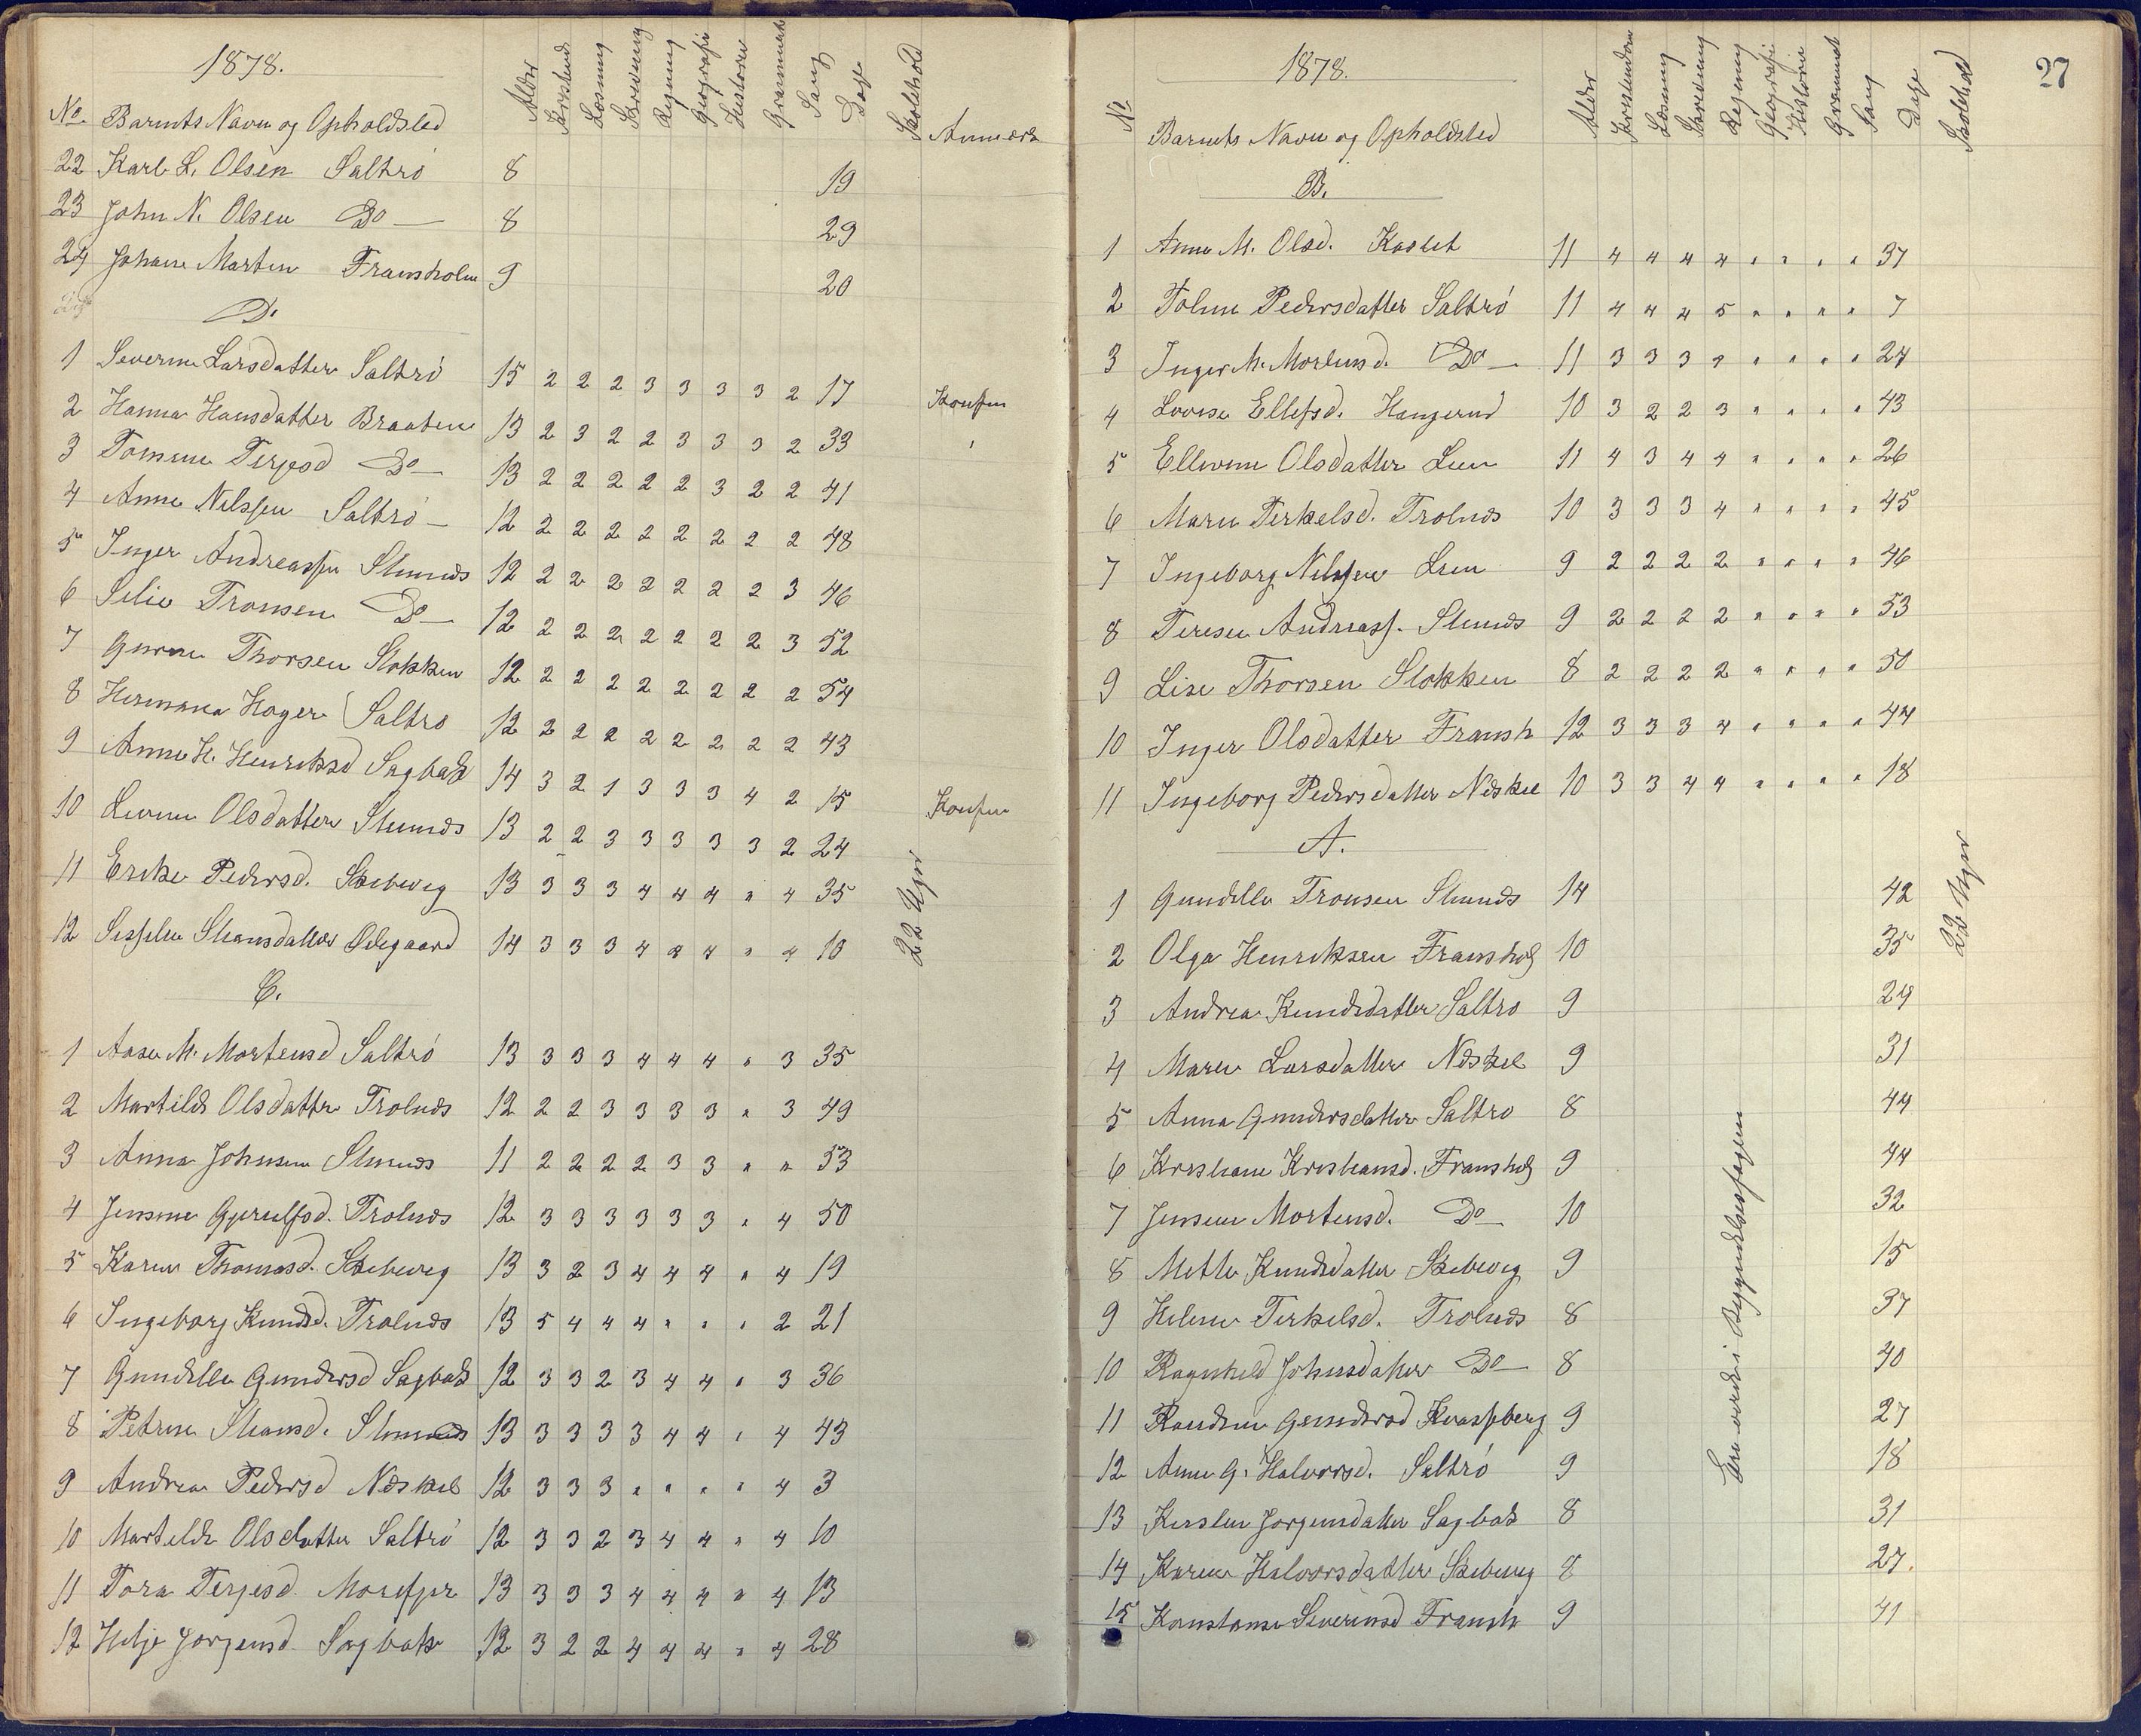 1878.
No. Barnets Navn og Opholdsted Alder Kristend Læsning Skrivning Regning Geografi Historie Grammat Sang Dage Skolehold Anmærk
22 Karl L. Olsen Saltrö 8 19
23 John N. Olsen Do 8 29
24 Johan Martin Fransholm 9 20
D.
1 Severine Larsdatter Saltrö 15 2 2 2 3 3 3 3 2 17 Konfirm
2 Hanna Hansdatter Braaten 13 2 3 2 2 3 3 3 2 33 "
3 Tomine Terjesd Do 13 2 2 2 2 2 3 2 2 41
4 Anne Nilssen Saltrö 12 2 2 2 2 2 2 2 2 48
5 Inger Andreassen Stunæs 12 2 2 2 2 2 2 2 3 46
6 Silie Tronsen Do 12 2 2 2 2 2 2 2 3 52
7 Gurine Thorsen Slokken 12 2 2 2 2 2 2 2 2 54
8 Hermana Hoyer Saltrö 12 2 2 2 2 2 2 2 2 43
9 Anne H. Henriksd Sagbak 14 3 2 1 3 3 3 4 2 15 Konfirm
10 Levine Olsdatter Stunæs 13 2 2 3 3 3 3 3 2 24
11 Erike Pedersd. Skibevig 13 3 3 3 4 4 4 " 4 35
12 Sisselie Stiansdatter Ødegaard 14 3 3 3 4 4 4 " 4 10
22 Uger
C.
1 Aase M. Mortensd Saltrö 13 3 3 3 4 4 4 " 3 35
2 Martilde Olsdatter Trolnæs 12 2 2 3 3 3 3 " 3 49
3 Anna Johnsen Stunæs 11 2 2 2 2 3 3 " " 53
4 Jensine Gjerulfsd. Trolnæs 12 3 3 3 3 3 3 " 4 50
5 Karen Thomasd. Skibevig 13 3 2 3 4 4 4 " 4 19
6 Ingeborg Knudsd. Trolnæs 13 5 4 4 4 " " " 2 21
7 Gunilde Gundersd Sagbak 12 3 3 2 3 4 4 " 3 36
8 Petrine Stiansd. Stunæs 13 3 3 3 3 4 4 " 4 43
9 Andrea Pedersd Næskil 12 3 3 3 " " " " 4 3
10 Martilde Olsdatter Saltrö 12 3 3 2 3 4 4 " 4 10
11 Tora Terjesd. Morefjer 13 3 3 3 4 4 4 " 4 13
12 Helje Jorgensd. Sagbak 12 3 2 2 4 4 4 " 4 28
27
1878.
No Barnets Navn og Opholdsted Alder Kristendom Læsning Skrivning Regning Geografi Historie Grammat Sang Dage Skolehold
B.
1 Anne M. Olsd. Kaslet 11 4 4 4 4 " " " " 37
2 Toline Pedersdatter Saltrö 11 4 4 4 5 " " " " 7
3 Inger M. Mortensd. Do 11 3 3 3 4 " " " " 24
4 Lovise Ellefsd. Hangerud 10 3 2 2 3 " " " " 43
5 Ellevine Olsdatter Lien 11 4 3 4 4 " " " " 26
6 Maren Terkelsd. Trolnæs 10 3 3 3 4 " " " " 45
7 Ingeborg Nilssen Lien 9 2 2 2 2 " " " " 46
8 Terese Andreass. Stunæs 9 2 2 2 2 " " " " 53
9 Lise Thorsen Slokken 8 2 2 2 2 " " " " 50
10 Inger Olsdatter Fransh 12 3 3 3 4 " " " " 44
11 Ingeborg Pedersdatter Næskil 10 3 3 4 4 " " " " 18
A.
1 Gunilde Tronsen Stunæs 14 42
2 Olga Henriksen Fransholm 10 35
3 Andrea Knudsdatter Saltrö 9 24
4 Maren Larsdatter Næskil 9 31
5 Anna Gundersdatter Saltro 8 44
6 Kristiane Kristiansd. Fransholm 9 44
7 Jensine Mortensd. Do 10 32
8 Mette Knudsdatter Skibevig 9 15
9 Helene Terkelsd. Trolnæs 8 37
10 Ragnhild Johnsdatter Do 8 40
11 Randine Gundersd Kvassberg 9 27
12 Anne G. Halvorsd. Saltrö 9 18
13 Kirsten Jorgensdatter Sagbak 8 31
14 Karen Halvorsdatter Skibevig 8 27.
15 Konstanse Severinsd Fransh 9 41
22 Uger
Ere endnu i Begyndelsesfagene